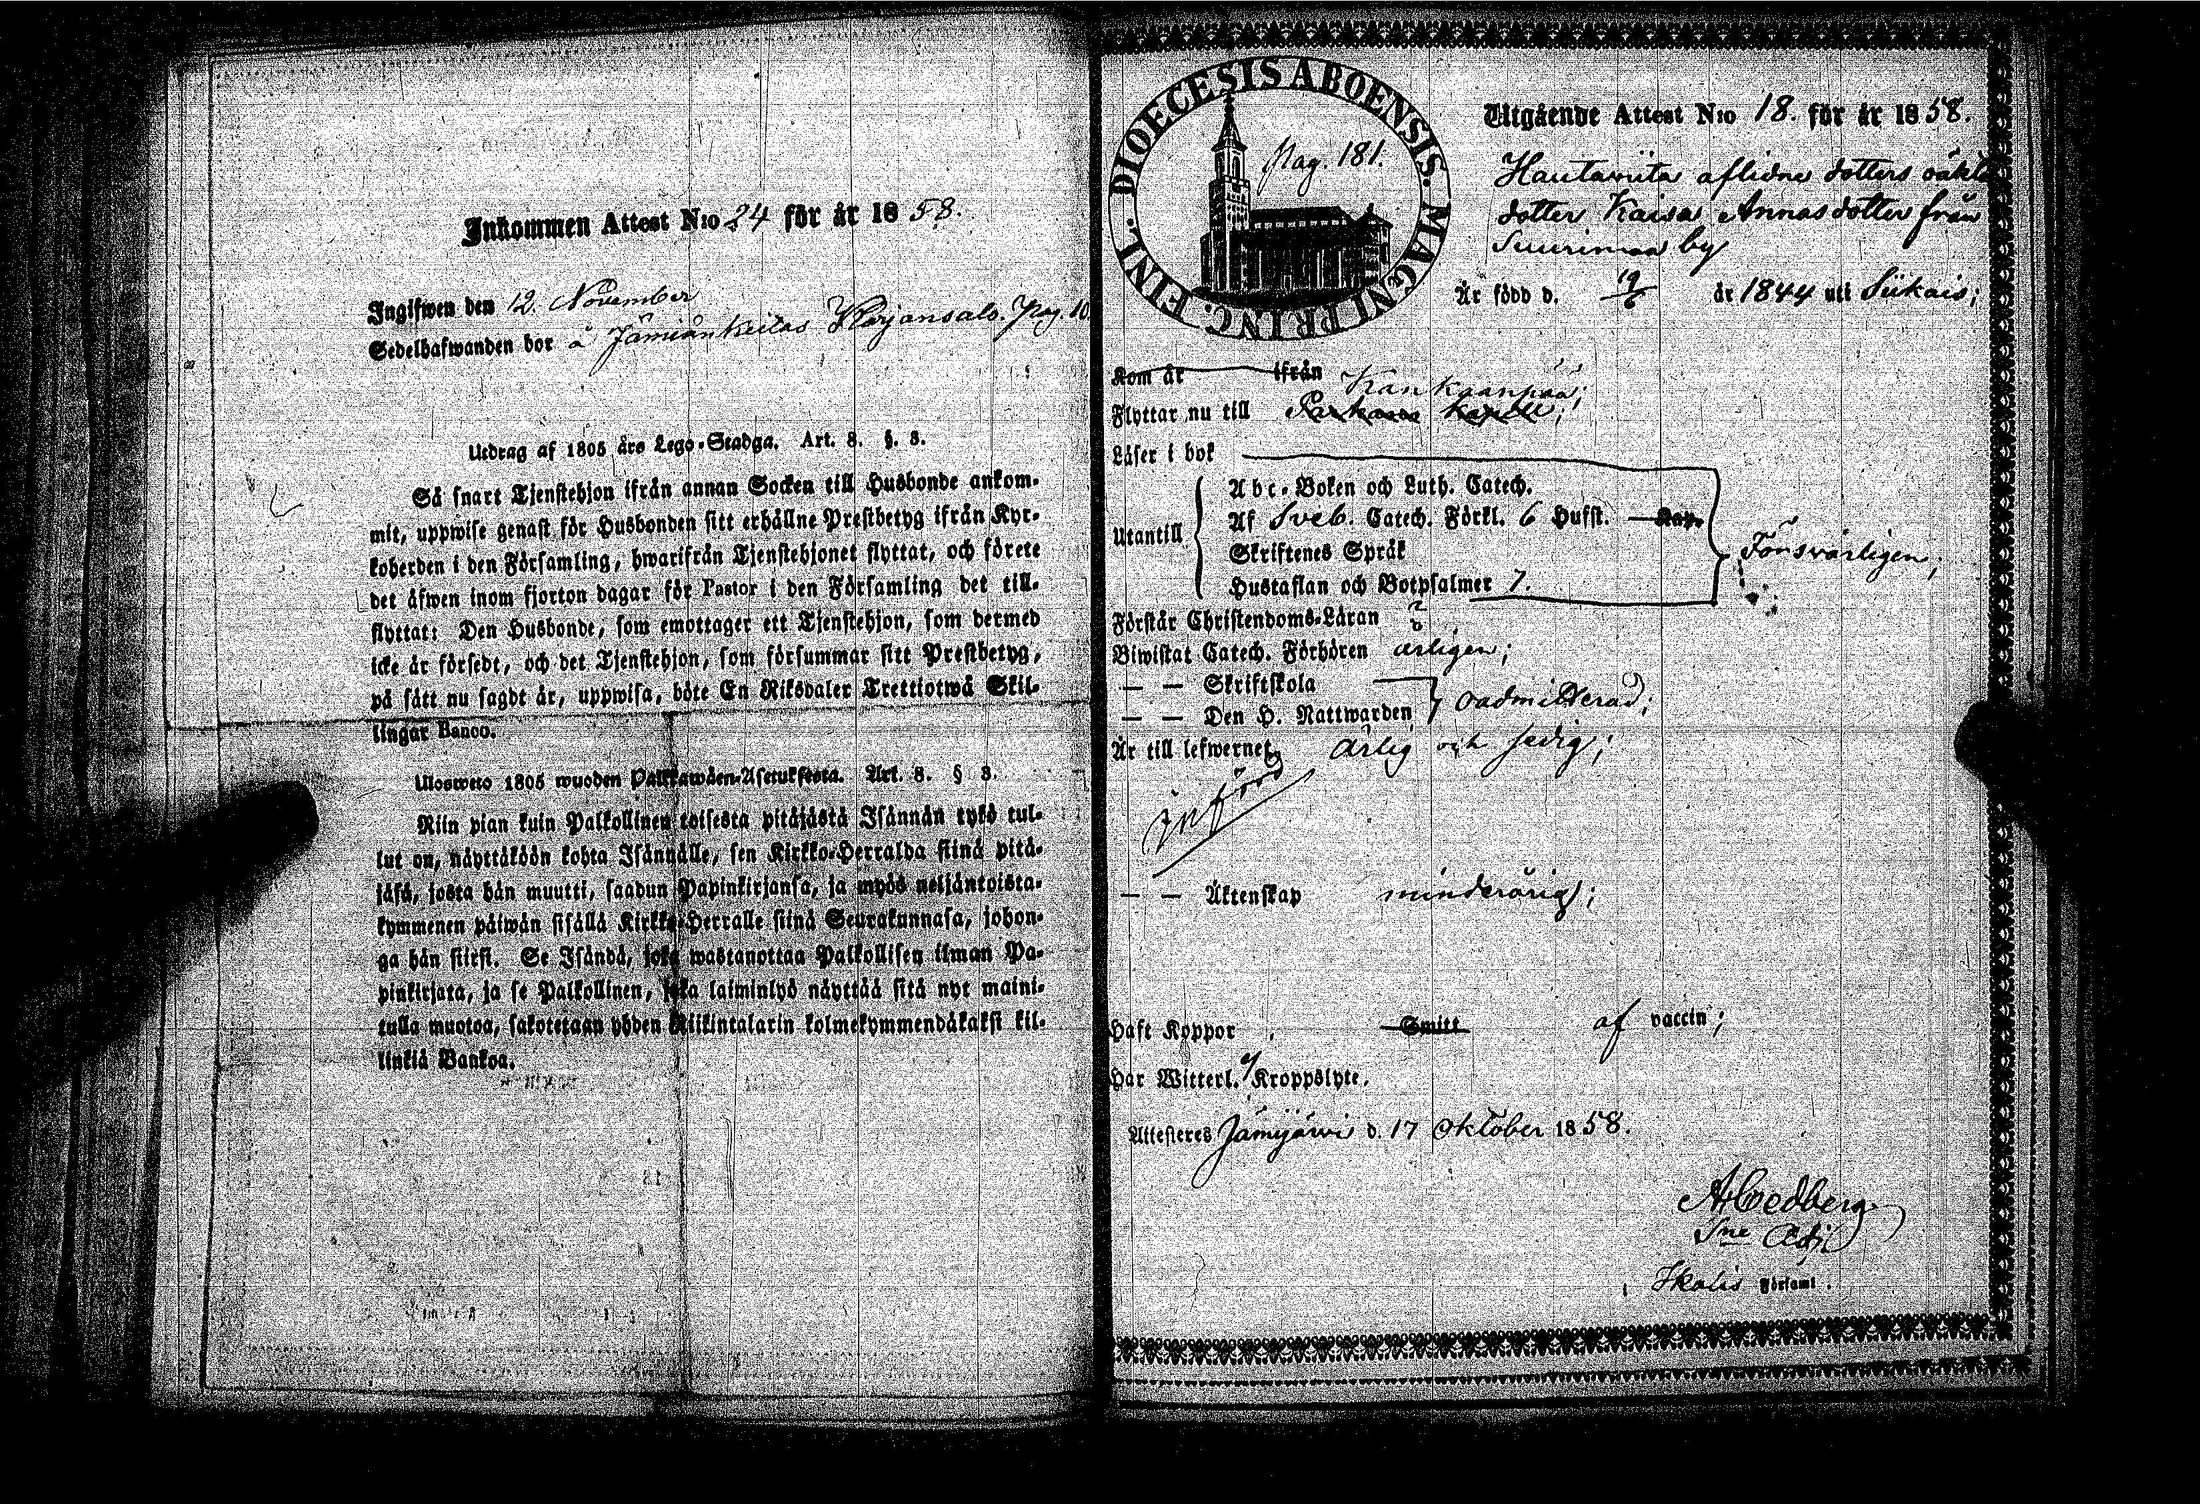 Inkommen Attest N:o 24 för år 1858.
Ingifwen den 12. November
Sedelhafwanden bor å Jämiänkeitas Karjansalo. Pag. 10
Utdrag af 1805 års Lego-Stadga. Art. 8. §. 3.
Så snart Tjenstehjon ifrån annan Socken till Husbonde ankom-
mit, uppwise genast för Husbonden sitt erhållne Prestbetyg ifrån Kyr-
koherden i den Församling, hwarifrån Tjenstehjonet flyttat, och förete
det äfwen inom fjorton dagar för Pastor i den Församling det till-
flyttat: Den Husbonde, som emottager ett Tjenstehjon, som dermed
icke är försedt, och det Tjenstehjon, som försummar sitt Prestbetyg,
på sätt nu sagdt är, uppwisa, böte En Riksdaler Trettiotwå Skil-
lingar Banco.
Ulosweto 1805 wuoden Palkkawäen-Asetuksesta. Art. 8. § 3.
Niin pian kuin Palkollinen toisesta pitäjästä Isännän tykö tul-
lut on, näyttäköön kohta Isännälle, sen Kirkko-Herralda siinä pitä-
jäsä, josta hän muutti, saadun Papinkirjansa, ja myös neljäntoista-
kymmenen päiwän sisällä Kirkko-Herralle siinä Seurakunnasa, johon-
ga hän siirsi. Se Isändä, joka wastanottaa Palkollisen ilman Pa-
pinkirjata, ja se Palkollinen, joka laiminlyö näyttää sitä nyt maini-
tulla muotoa, sakotetaan yhden Riikintalarin kolmekymmendäkaksi kil-
linkiä Bankoa.
DIOECESIS ABOENSIS. MAGNI PRINC. FINL.
Pag. 181.
Utgående Attest N:o 18. för år 1858.
aflidne dotters oäkta
dotter Kaisa Annasdotter från
Suurimaa by
Är född d. 19/6 år 1844 uti Siikais;
Kom år ifrån
Kankaanpää;
Flyttar nu till Parkano Kapell;
Läser i bok
Utantill
Abc-Boken och Luth. Catech.
Af Sveb. Catech. Förkl. 6 Hufst. Kap.
Skriftenes Språk
Hustaflan och Botpsalmer 7.
Försvarligen;
Förstår Christendoms-Läran
Biwistat Catech. Förhören årligen;
— — Skriftskola
— — Den H. Nattwarden
oadmitterad;
Är till lefwernet ärlig och sedig;
införd
— — Äktenskap minderårig;
Haft Koppor Smitt af vaccin;
Har Witterl. ej Kroppslyte.
Attesteres Jämijärvi d. 17 Oktober 1858.
A Cedberg
Sne Adj
i Ikalis Församl.